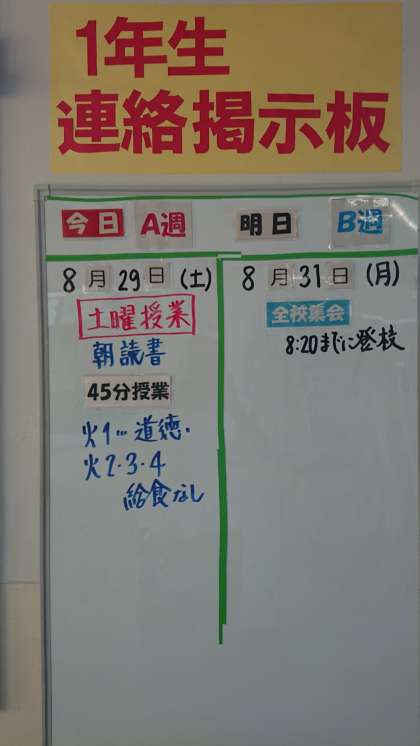 1年生
連絡掲示板
今日 A週
8月29日(土)
土曜授業
朝読書
45分授業
火1…道徳.
火2・3・4
給食なし
明日 B週
8月31日(月)
全校集会
8:20までに登校